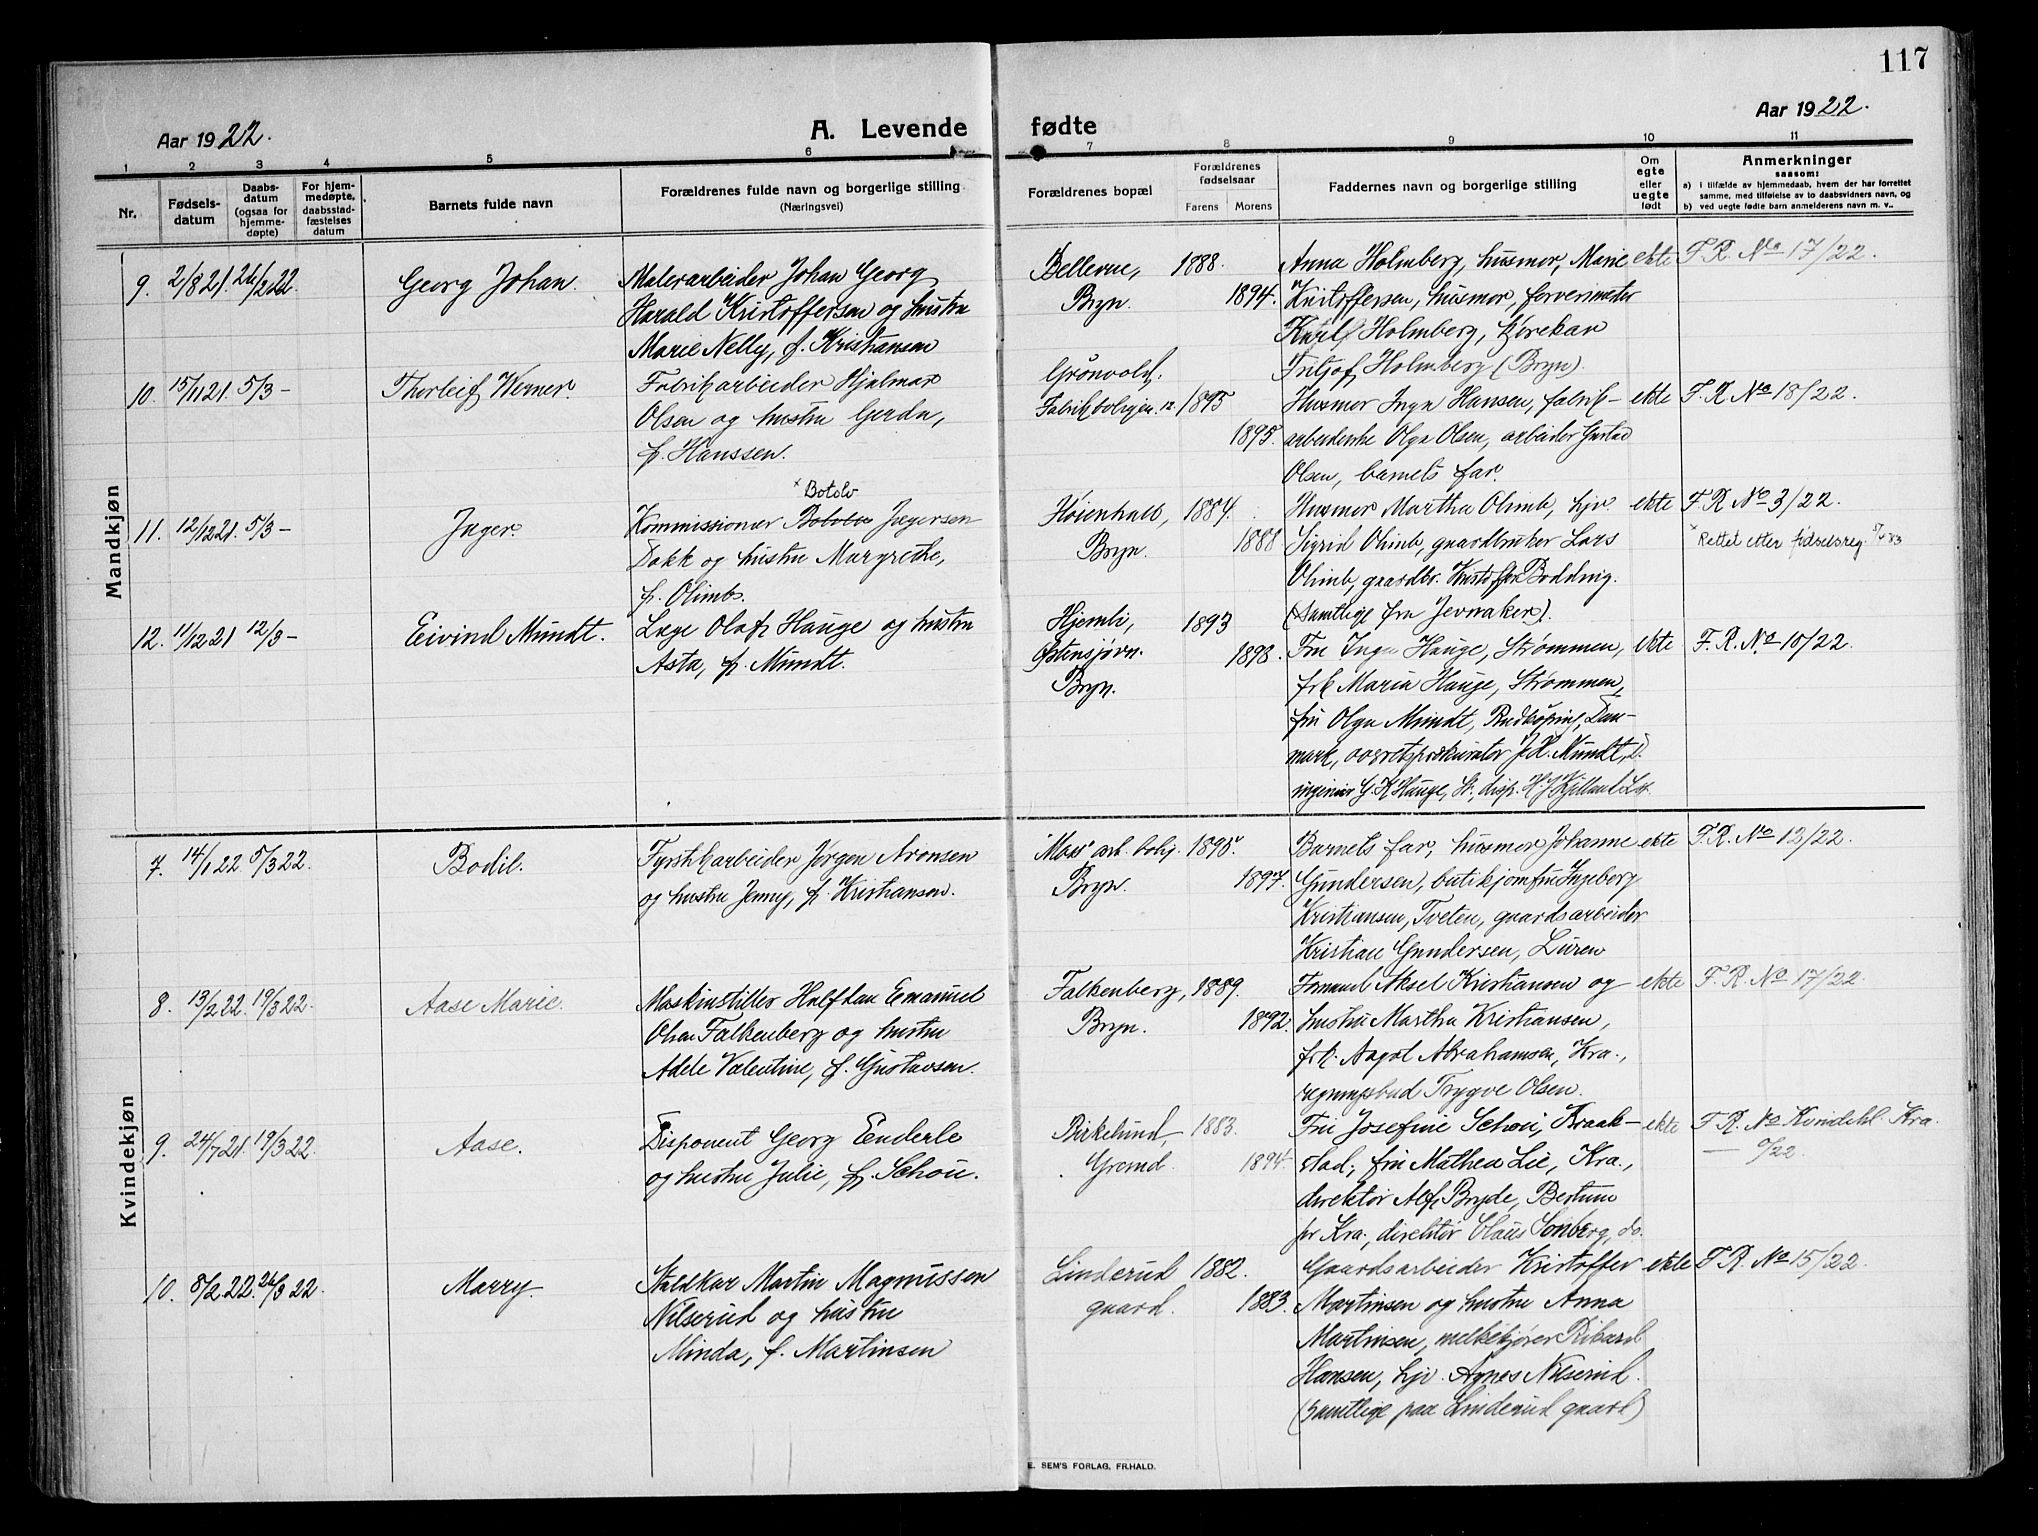 117
Aar 1922.
A. Levende fødte
Aar 1922.
1 2 3 4 5 6 7 8 9 10 11
Nr.
Fødsels-
datum
Daabs-
datum
(ogsaa for
hjemme-
døpte)
For hjem-
medøpte,
daabsstad-
fæstelses
datum
Barnets fulde navn
Forældrenes fulde navn og borgerlige stilling
(Næringsvei)
Forældrenes bopæl
Forældrenes
fødselsaar
Farens Morens
Faddernes navn og borgerlige stilling
Om
egte
eller
uegte
født
Anmerkninger
saasom:
a) i tilfælde av hjemmedaab, hvem der har forrettet
samme, med tilføielse av to daabsvidners navn, og
b) ved uegte fødte barn anmelderens navn m. v..
Mandkjøn
9. 2/8 21. 26/2 22. Georg Johan.
Malerarbeider Johan Georg
Harald Kristoffersen og hustru
Marie Nelly, f. Kristiansen
Bellevue,
Bryn.
1888.
1894.
Anna Holmberg, husmor, Marie
Kristoffersen, husmor, farverimester
Karl Holmberg, kjørekar
Fritjof Holmberg (Bryn).
ekte F. R. No 17/22.
10. 15/11 21. 5/3 - Thorleif Werner.
Fabrikarbeider Hjalmar
Olsen og hustru Gerda,
f. Hanssen.
Grönvold,
Fabrikboligen 12.
1895
1895.
Husmor Inga Hansen, fabrik-
arbeiderske Olga Olsen, arbeider Gustav
Olsen, barnets far.
ekte F. R. No 18/22.
11. 12/12 21. 5/3 - Inger.
× Botolv
Kommissionær Jegersen
Dokk og hustru Margrethe,
f. Olimb.
Høienhald,
Bryn.
1884.
1888
Husmor Martha Olimb, hjv
Sigrid Olimb, gaardbruker Lars
Olimb, gaardbr. Kristoffer Boddvig.
(Samtlige fra Jevnaker).
ekte F. R. No 3/22.
× Rettet etter fødselsreg.
12. 11/12 21 12/3 - Eivind Mundt.
Læge Olaf Hauge og hustru
Asta, f. Mundt.
Hjemli,
Østensjøvn.
Bryn.
1893
1898.
Fru Inga Hauge, Strømmen,
frk Maria Hauge, Strømmen,
fru Olga Mundt, Rudkøping, Dan-
mark, overretsprokurator J. H. Mundt, D.
ingeniør G. K Hauge, St., disp. H. J Kjelland
ekte F. R. No 10/22.
Kvindekjøn
7. 14/1 22 5/3 22. Bodil.
Fyrstikarbeider Jørgen Aronsen
og hustru Jenny, f. Kristiansen.
"Mors" arb. bolig.
Bryn.
1895.
1897.
Barnets far, husmor Johanne
Gundersen, butikjomfru Ingeborg
Kristiansen, Tveten, gaardsarbeider
Kristian Gundersen, Luren
ekte F. R. No 13/22.
8. 13/2 22. 19/3 22. Aase Marie.
Maskinstiller Halfdan Emanuel
Olsen Falkenberg og hustru
Adele Valentine, f. Gustavsen.
Falkenberg,
Bryn.
1889.
1892.
Formand Aksel Kristiansen og
hustru Martha Kristiansen,
frk. Aagot Abrahamsen, Kra.,
regningsbud Trygve Olsen.
ekte F. R. No 17/22.
9. 24/7 21 19/3 22. Aase.
Disponent Georg Enderle
og hustru Julie, f. Schou.
Birkelund,
Grorud.
1883.
1894.
Fru Josefine Schou, Kraak-
stad, fru Mathea Lie, Kra.,
direktør Alf Bryde, Bestum
pr Kra., direktør Claus Sonberg, do.
ekte F. R. No Kvindekl. Kra.
— 0/22.
10. 8/2 22. 26/3 22. Marry.
Staldkar Martin Magnussen
Nilserud og hustru
Minda, f. Martinsen
Linderud
gaard.
1882.
1883.
Gaardsarbeider Kristoffer
Martinsen og hustru Anna
Martinsen, melkekjører Rikard
Hansen, hjv. Agnes Nilserud.
(samtlige paa Linderud gaard)
ekte F. R. No 15/22.
E. SEM'S FORLAG, FR.HALD.